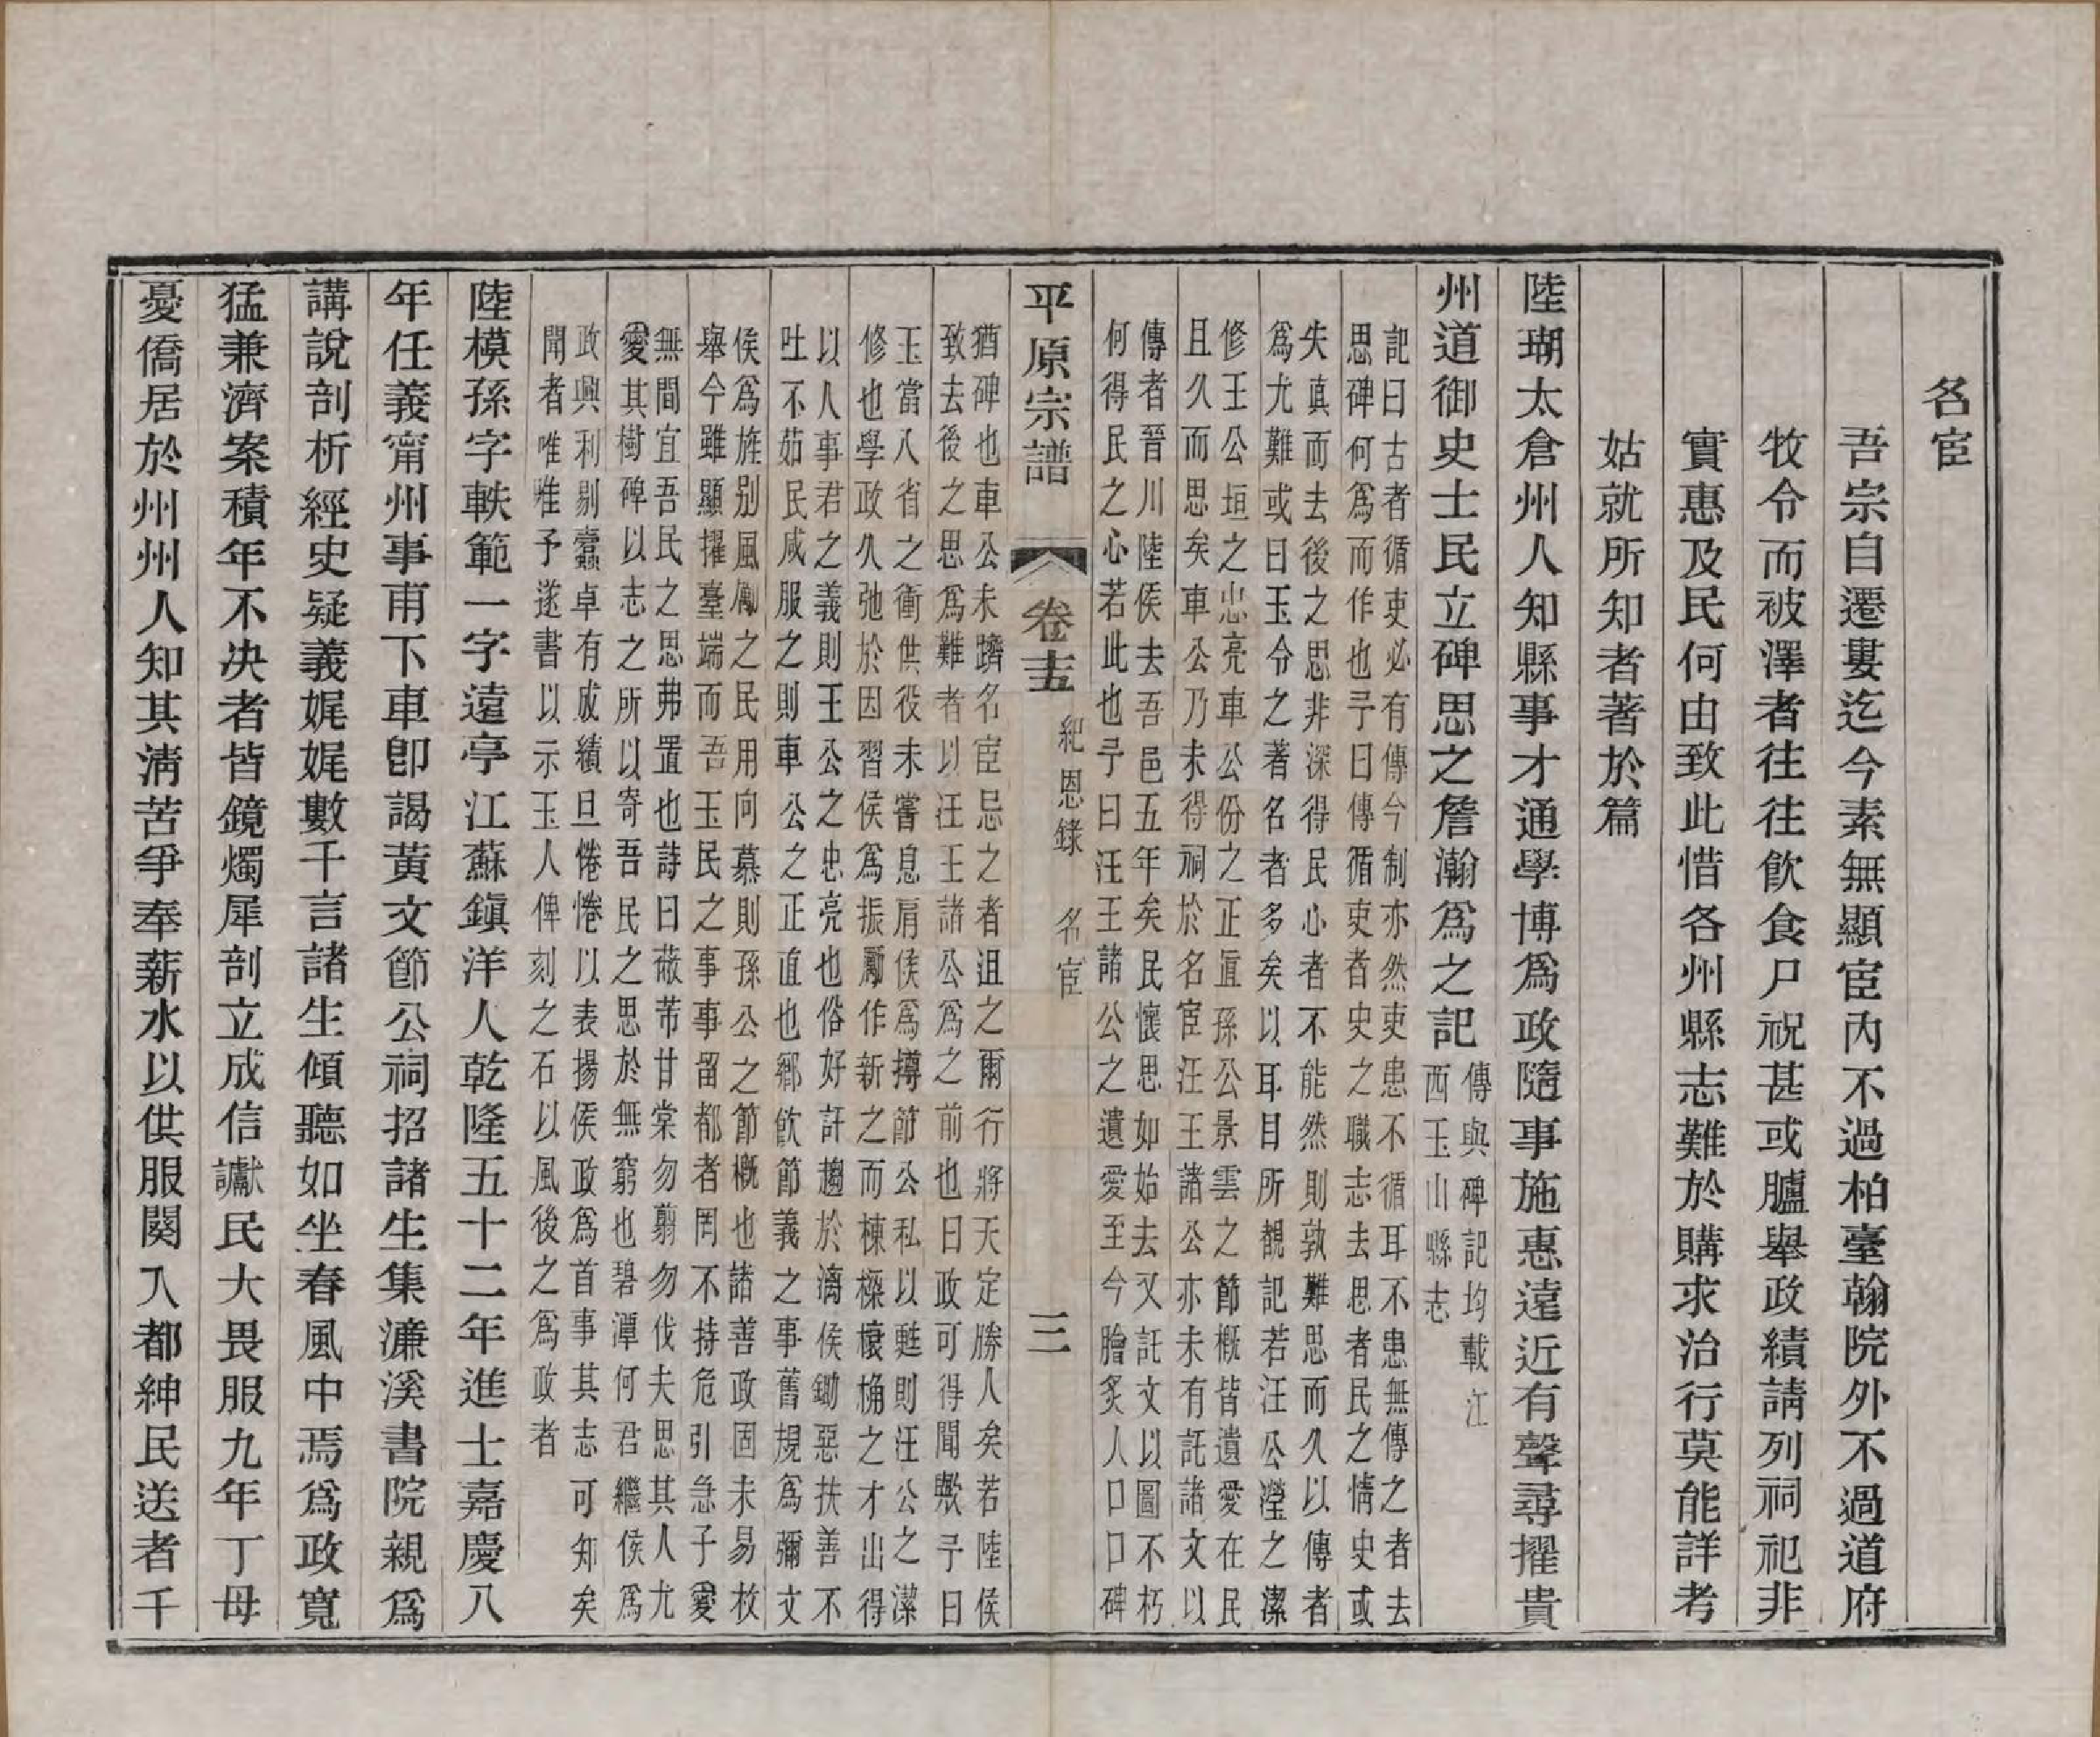 名宦
吾宗自遷婁迄今素無顯宦內不過柏臺翰院外不過道府
牧令而被澤者往往飲食尸祝甚或臚舉政績請列祠祀非
實惠及民何由致此惜各州縣志難於購求治行莫能詳考
姑就所知者著於篇
陸瑚太倉州人知縣事才通學博爲政隨事施惠遠近有聲尋擢貴
州道御史士民立碑思之詹瀚爲之記
傳與碑記均載江
西玉山縣志
記曰古者循吏必有傳今制亦然吏患不循耳不患無傳之者去
思碑何爲而作也予曰傳循吏者史之職志去思者民之情史或
失真而去後之思非深得民心者不能然則孰難思而久以傳者
爲尤難或曰玉令之著名者多矣以耳目所覩記若汪公瀅之潔
修王公垣之忠亮車公份之正直孫公景雲之節概皆遺愛在民
且久而思矣車公乃未得祠於名宦汪王諸公亦未有託諸文以
傳者晉川陸侯去吾邑五年矣民懷思如始去又託文以圖不朽
何得民之心若此也予曰汪王諸公之遺愛至今膾炙人口口碑
平原宗譜
卷十五
紀恩錄 名宦
三
猶碑也車公未躋名宦忌之者沮之爾行將天定勝人矣若陸侯
致去後之思爲難者以汪王諸公爲之前也曰政可得聞歟予曰
玉當八省之衝供役未嘗息肩侯爲撙節公私以甦則汪公之潔
修也學政久弛於因習侯爲振勵作新之而棟樑榱桷之才出得
以人事君之義則王公之忠亮也俗好訐趨於漓侯鋤惡扶善不
吐不茹民咸服之則車公之正直也鄉飲節義之事舊規爲彌文
侯爲旌別風勵之民用向慕則孫公之節概也諸善政固未易枚
舉今雖顯擢臺端而吾玉民之事事留都者罔不持危引急子愛
無間宜吾民之思弗置也詩曰蔽芾甘棠勿翦勿伐夫思其人尤
愛其樹碑以志之所以寄吾民之思於無窮也碧潭何君繼侯爲
政興利剔蠹卓有成績旦惓惓以表揚侯政爲首事其志可知矣
聞者唯唯予遂書以示玉人俾刻之石以風後之爲政者
陸模孫字軼範一字遠亭江蘇鎮洋人乾隆五十二年進士嘉慶八
年任義甯州事甫下車卽謁黃文節公祠招諸生集濂溪書院親爲
講說剖析經史疑義娓娓數千言諸生傾聽如坐春風中焉爲政寬
猛兼濟案積年不決者皆鏡燭犀剖立成信讞民大畏服九年丁母
憂僑居於州州人知其淸苦爭奉薪水以供服闋入都紳民送者千